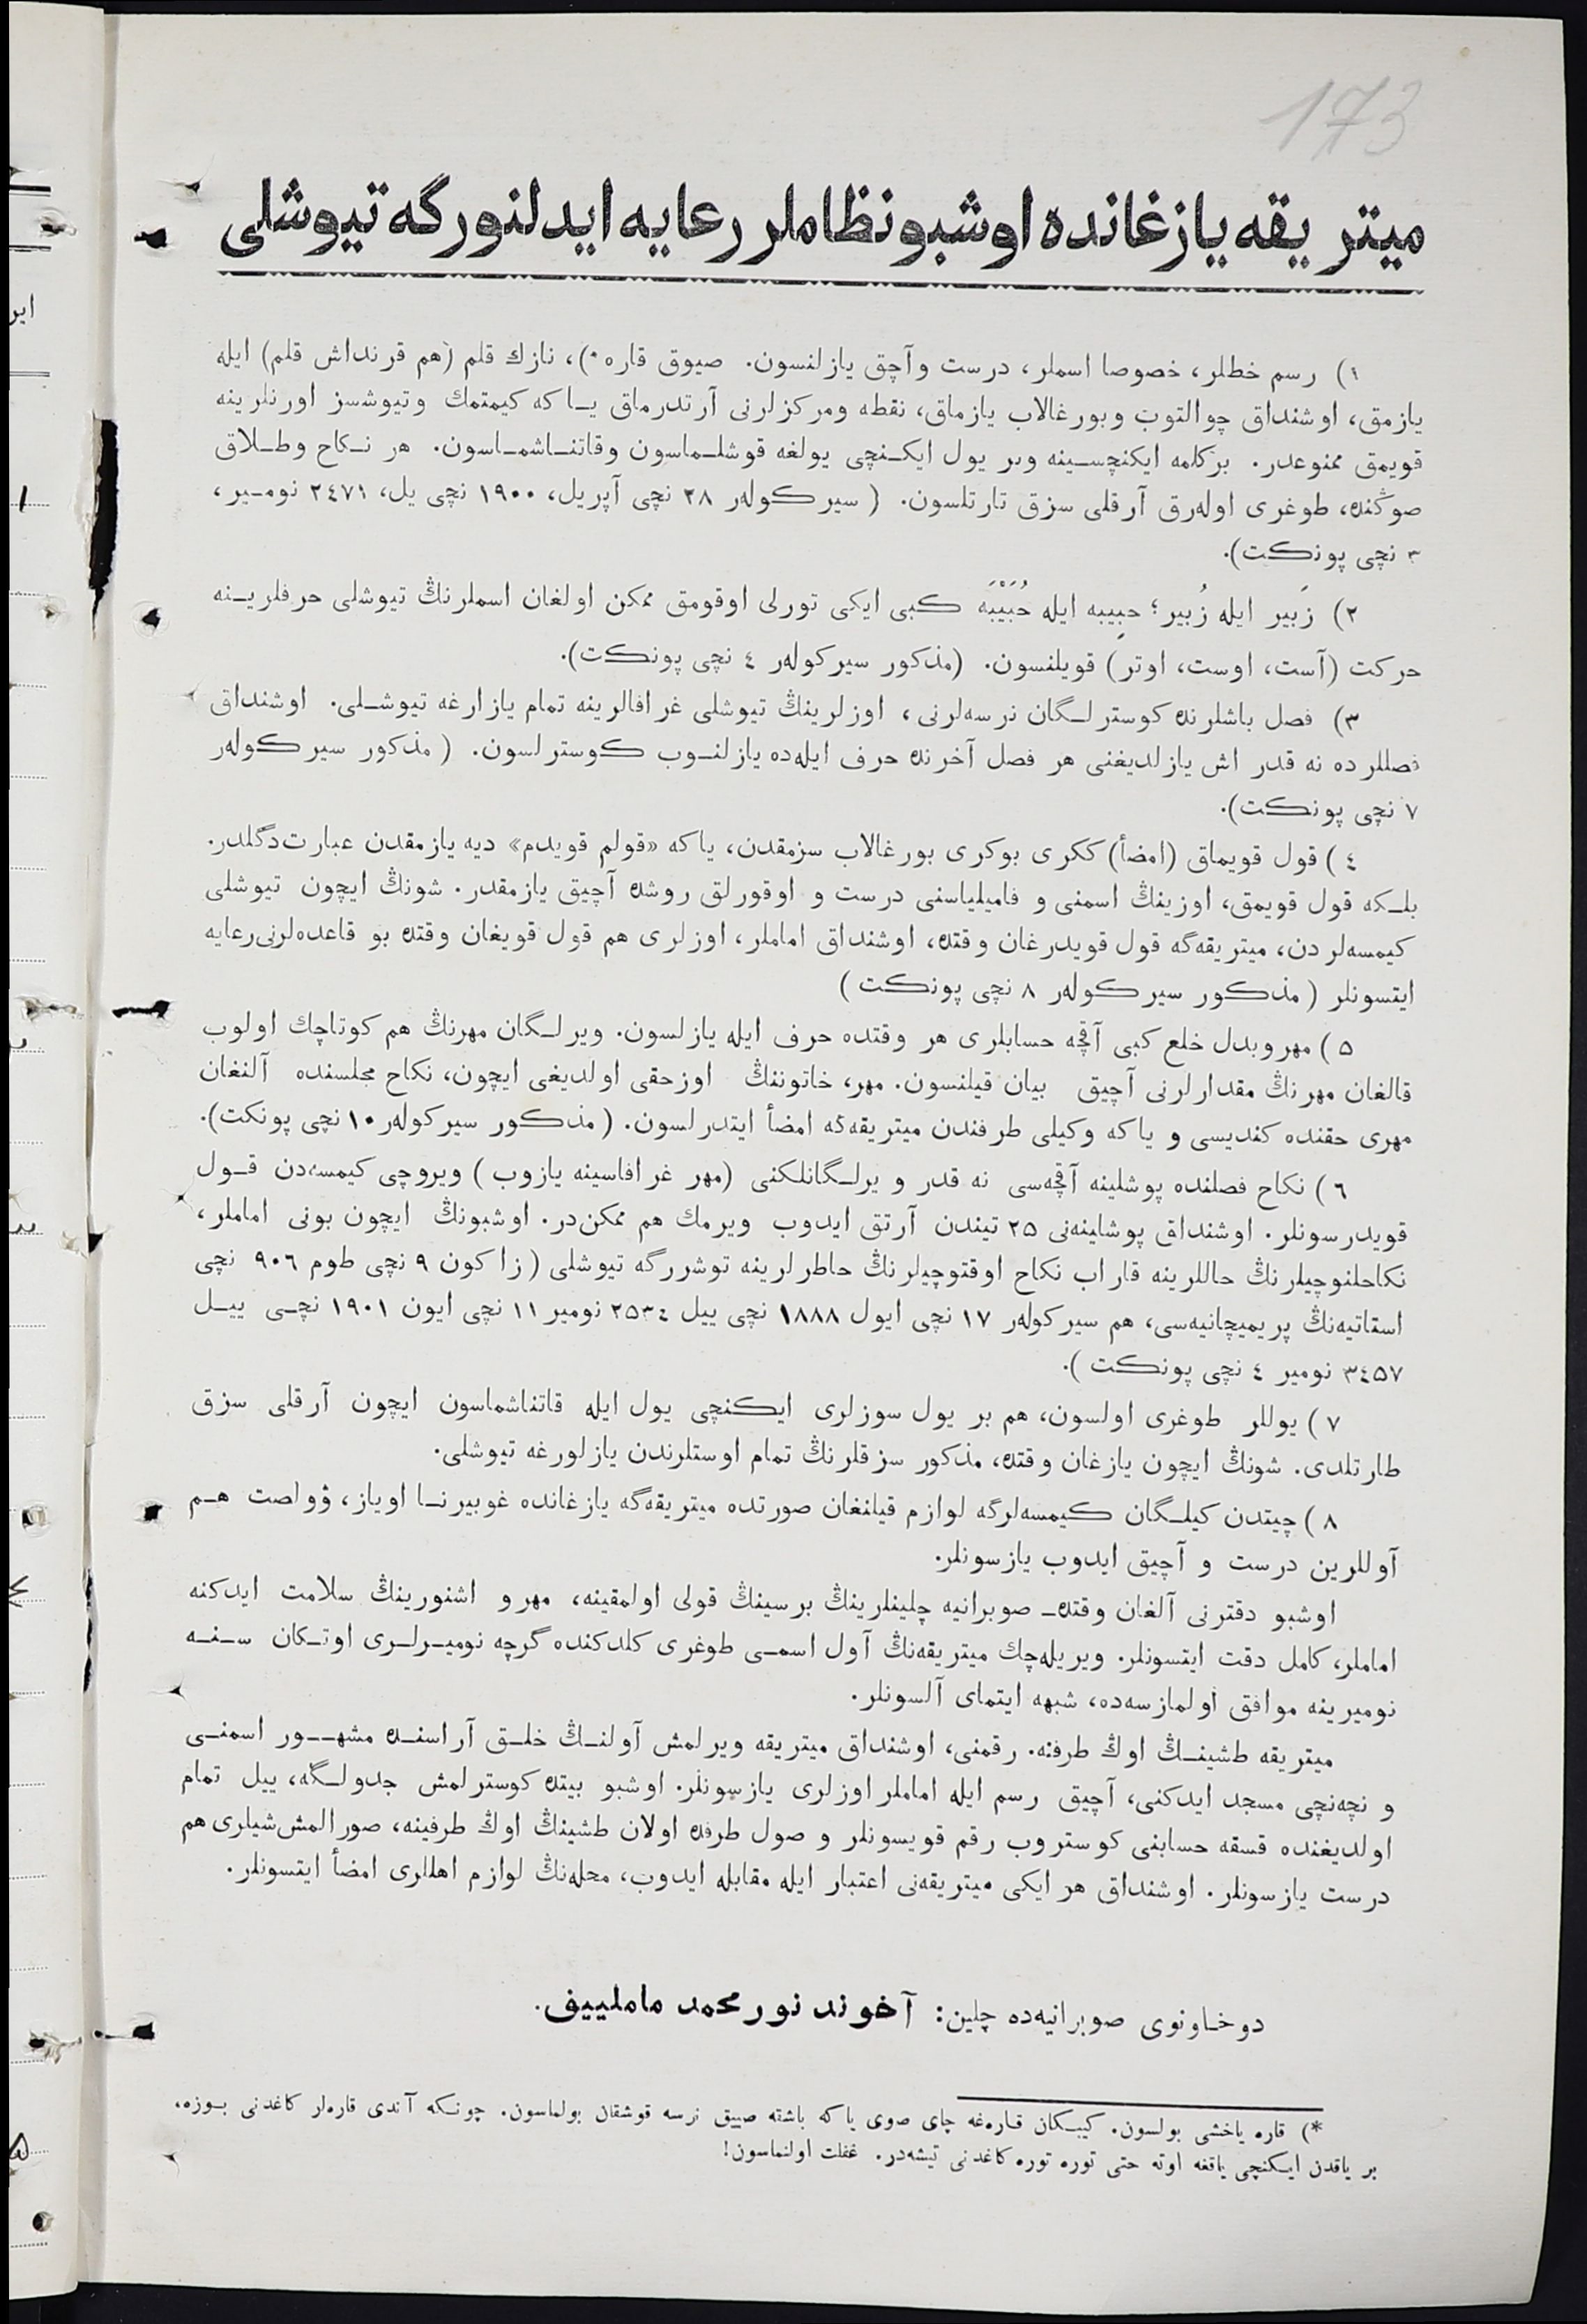 173
ميتريقه يازغانده اوشبو نظاملر رعايه ايدلنورگه تيوشلى
١) رسم خطلر، خصوصا اسملر، درست وآچق يازلنسون. صيوق قاره *)، نازك قلم (هم قرنداش قلم) ايله
يازمق، اوشنداق چوالتوب وبورغالاب يازماق، نقطه ومركزلرنى آرتدرماق يا كه كيمتمك وتيوشسز اورنلرينه
قويمق ممنوعدر. بر كلمه ايكنچسينه وبر يول ايكنچى يولغه قوشلماسون وقاتناشماسون. هر نكاح وطلاق
صوڭنده، طوغرى اوله‌رق آرقلى سزق تارتلسون. (سيركولەر ٢٨ نچى آپريل، ١٩٠٠ نچى يل، ٢٤٧١ نومير،
٣ نچى پونكت).
٢) زَبير ايله زُبير؛ حبِيبه ايله حُبَيْبَه كبى ايكى تورلى اوقومق ممكن اولغان اسملرنڭ تيوشلى حرفلرينه
حركت (آست، اوست، اوتر) قويلنسون. (مذكور سيركولەر ٤ نچى پونكت).
٣) فصل باشلرنده كوسترلگان نرسه‌لرنى، اوزلرينڭ تيوشلى غرافالرينه تمام يازارغه تيوشلى. اوشنداق
فصللرده نه قدر اش يازلديغنى هر فصل آخرنده حرف ايله‌ده يازلنوب كوسترلسون. (مذكور سيركولەر
٧ نچى پونكت).
٤) قول قويماق (امضأ) ككرى بوكرى بورغالاب سزمقدن، يا كه «قولم قويدم» ديه يازمقدن عبارت دگلدر.
بلكه قول قويمق، اوزينڭ اسمنى و فاميلياسنى درست و اوقورلق روشده آچيق يازمقدر. شونڭ ايچون تيوشلى
كيمسه‌لردن، ميتريقه‌گه قول قويدرغان وقتده، اوشنداق اماملر، اوزلرى هم قول قويغان وقتده بو قاعده‌لرنى رعايه
ايتسونلر (مذكور سيركولەر ٨ نچى پونكت)
٥) مهر وبدل خلع كبى آقچه حسابلرى هر وقتده حرف ايله يازلسون. ويرلگان مهرنڭ هم كوتاچك اولوب
قالغان مهرنڭ مقدارلرنى آچيق بيان قيلنسون. مهر، خاتوننڭ اوز حقى اولديغى ايچون، نكاح مجلسنده آلنغان
مهرى حقنده كنديسى و يا كه وكيلى طرفندن ميتريقه‌گه امضأ ايتدرلسون. (مذكور سيركولەر ١٠ نچى پونكت).
٦) نكاح فصلنده پوشلينه آقچه‌سى نه قدر و يرلگانلكنى (مهر غرافاسينه يازوب) ويروچى كيمسه‌دن قول
قويدرسونلر. اوشنداق پوشلينه‌نى ٢٥ تيندن آرتق ايدوب ويرمك هم ممكن‌در. اوشبونڭ ايچون بونى اماملر،
نكاحلنوچيلرنڭ حاللرينه قاراب نكاح اوقتوچيلرنڭ خاطرلرينه توشررگه تيوشلى (زاكون ٩ نچى طوم ٩٠٦ نچى
استاتيه‌نڭ پريميچانيه‌سى، هم سيركولەر ١٧ نچى ايول ١٨٨٨ نچى ييل ٢٥٣٤ نومير ١١ نچى ايون ١٩٠١ نچى ييل
٣٤٥٧ نومير ٤ نچى پونكت).
٧) يوللر طوغرى اولسون، هم بر يول سوزلرى ايكنچى يول ايله قاتناشماسون ايچون آرقلى سزق
طارتلدى. شونڭ ايچون يازغان وقتده، مذكور سزقلرنڭ تمام اوستلرندن يازلورغه تيوشلى.
٨) چيتدن كيلگان كيمسه‌لرگه لوازم قيلنغان صورتده ميتريقه‌گه يازغانده غوبيرنا اوياز، ۋولصت هم
آوللرين درست و آچيق ايدوب يازسونلر.
اوشبو دفترنى آلغان وقتده صوبرانيه چلينلرينڭ برسينڭ قولى اولمقينه، مهر و اشنورينڭ سلامت ايدكنه
اماملر، كامل دقت ايتسونلر. ويريله‌چك ميتريقه‌نڭ آول اسمى طوغرى كلدكنده گرچه نوميرلرى اوتكان سنه
نوميرينه موافق اولمازسه‌ده، شبهه ايتماى آلسونلر.
ميتريقه طشينڭ اوڭ طرفنه. رقمنى، اوشنداق ميتريقه ويرلمش آولنڭ خلق آراسنده مشهور اسمنى
و نچه‌نچى مسجد ايدكنى، آچيق رسم ايله اماملر اوزلرى يازسونلر. اوشبو بيتده كوسترلمش جدولگه، ييل تمام
اولديغنده قسقه حسابنى كوستروب رقم قويسونلر و صول طرفده اولان طشينڭ اوڭ طرفينه، صورالمش شيلرى هم
درست يازسونلر. اوشنداق هر ايكى ميتريقه‌نى اعتبار ايله مقابله ايدوب، محله‌نڭ لوازم اهللرى امضأ ايتسونلر.
دوخاونوى صوبرانيه‌ده چلين: آخوند نور محمد ماملييف.
*) قاره ياخشى بولسون. كيبكان قاره‌غه چاى صوى يا كه باشته صييق نرسه قوشقان بولماسون. چونكه آندى قارەلر كاغدنى بوزه،
بر ياقدن ايكنچى ياقغه اوته حتى توره توره كاغدنى تيشه‌در. غفلت اولنماسون!